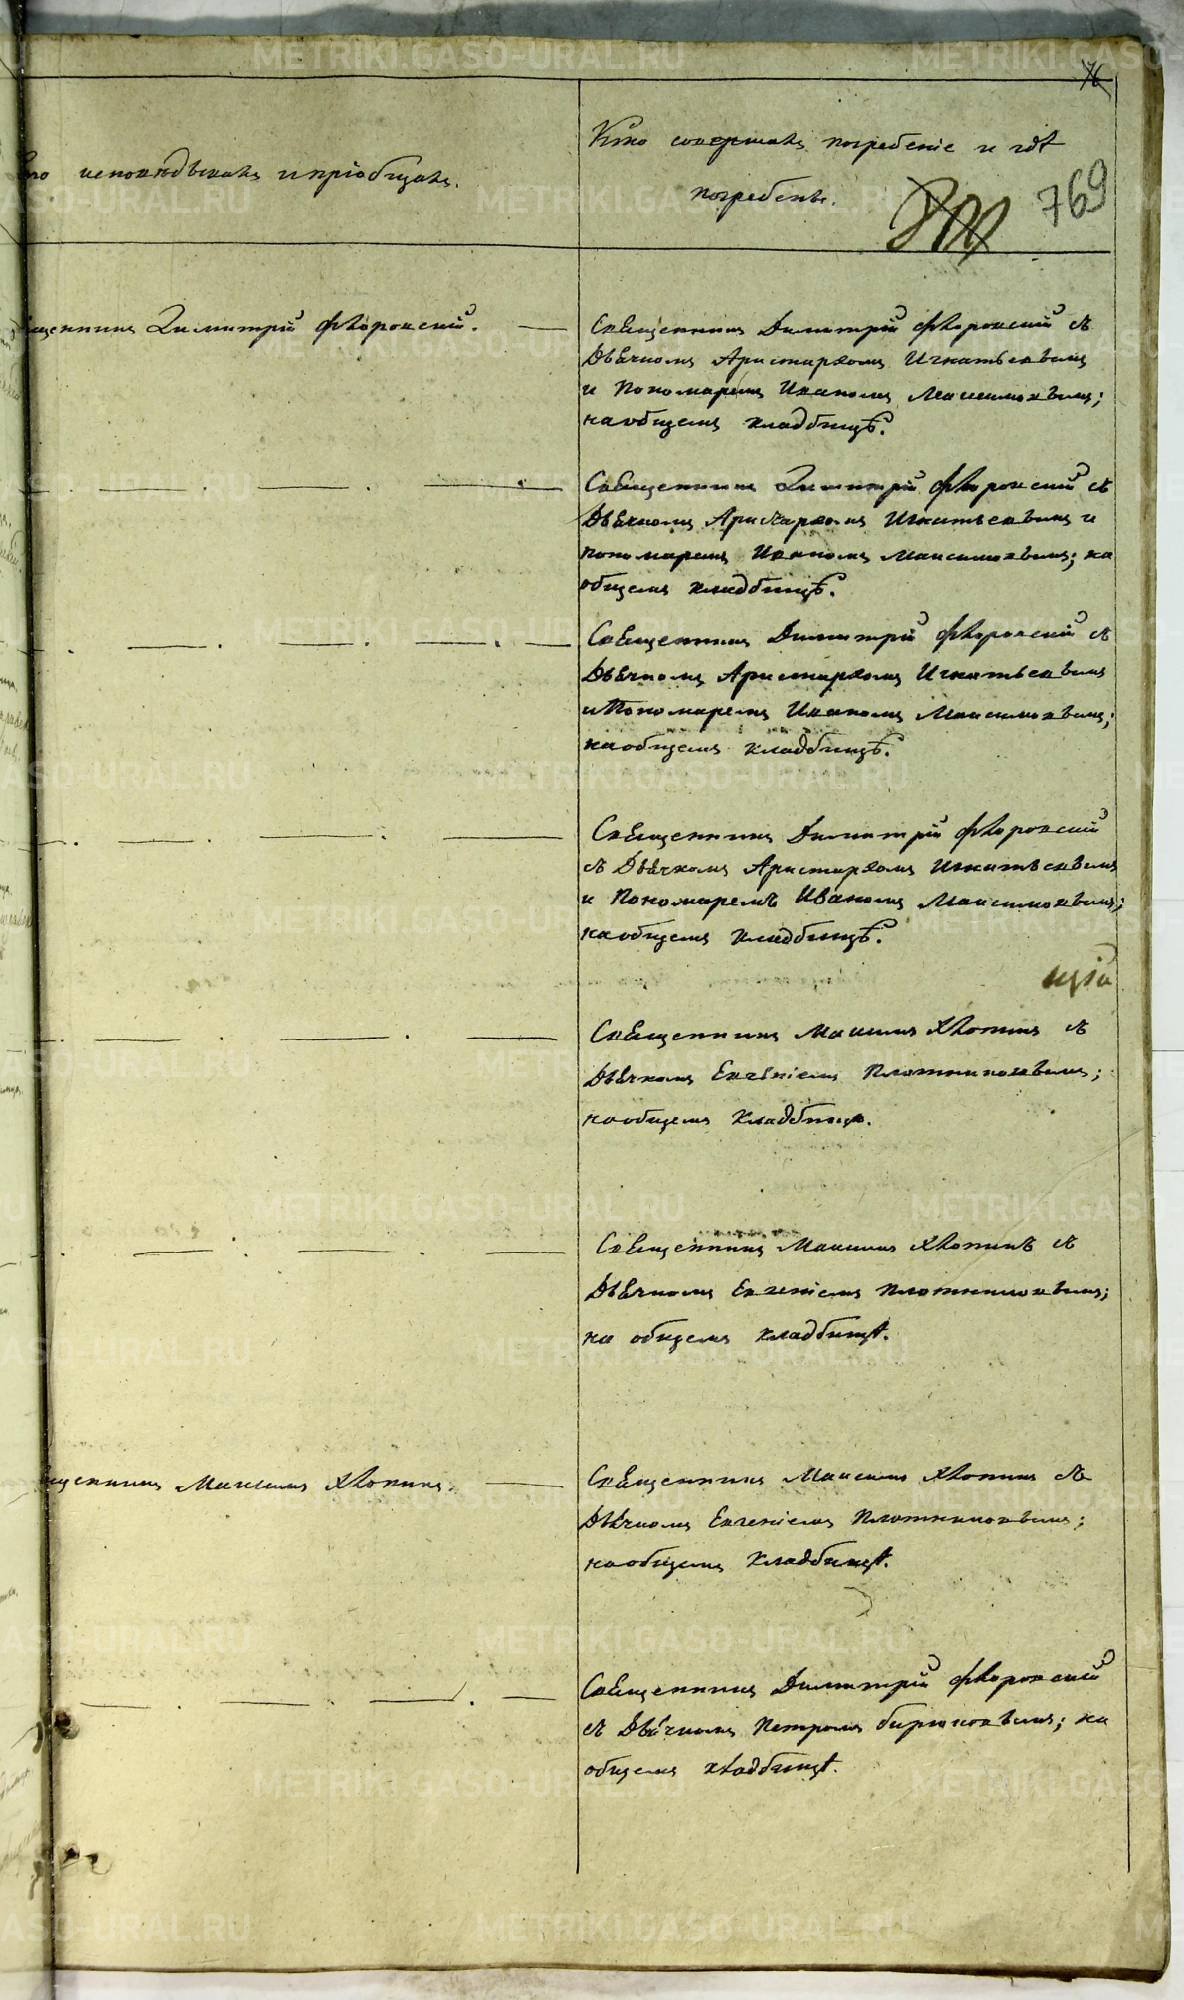 76
Кто совершалъ погребеніе и гдѣ
исповѣдывалъ и пріобщалъ.
погребены.
769
Димитрій Флоровскій.
Священникъ Димитрій Флоровскій съ
Дьячкомъ Аристархомъ Игнатьевымъ
и Пономаремъ Иваномъ Максимовымъ;
на общемъ кладбищѣ.
Священникъ Димитрій Флоровскій съ
Дьячкомъ Аристархомъ Игнатьевымъ и
пономаремъ Иваномъ Максимовымъ; на
общемъ кладбищѣ.
Священникъ Димитрій Флоровскій съ
Дьячкомъ Аристархомъ Игнатьевымъ
и Пономаремъ Иваномъ Максимовымъ;
на общемъ кладбищѣ.
Священникъ Димитрій Флоровскій
съ Дьячкомъ Аристархомъ Игнатьевымъ
и Пономаремъ Иваномъ Максимовымъ;
на общемъ кладбищѣ.
Священникъ Максимъ Хлопинъ съ
Дьячкомъ Евгеніемъ Плотниковымъ;
на общемъ кладбищѣ.
Священникъ Максимъ Хлопинъ съ
Дьячкомъ Евгеніемъ Плотниковымъ;
на общемъ кладбищѣ.
щенникъ Максимъ Хлопинъ.
Священникъ Максимъ Хлопинъ съ
Дьячкомъ Евгеніемъ Плотниковымъ;
на общемъ кладбищѣ.
Священникъ Димитрій Флоровскій
съ Дьячкомъ Петромъ Бирюковымъ; на
общемъ кладбищѣ.
METRIKI.GASO-URAL.RU